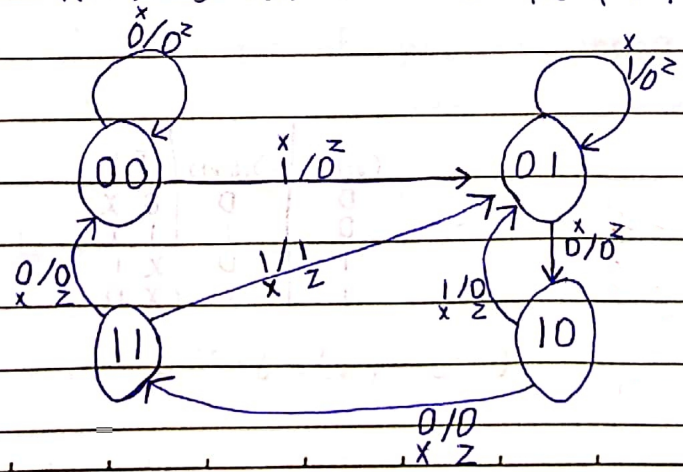 x
0/0 z
x
1/0 z
00
x
1/0 z
01
x
0/0 z
0/0
x z
1/1
x z
1/0
x z
11
10
0/0
x z